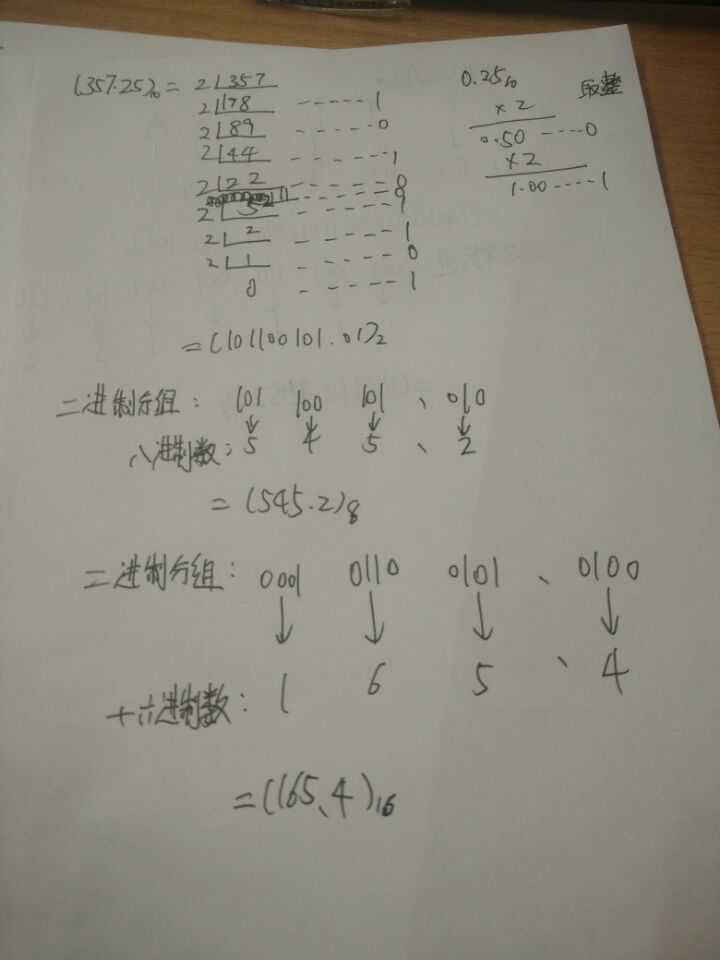 (357.25)₁₀ = 2 357 0.25₁₀ 取整
2 178 ----- 1 ×2
2 89 ----- 0 0.50 ----0
2 44 ----- 1 ×2
2 22 ----- 0 1.00 ----1
2 11 ----- 0
2 5 ----- 1
2 2 ----- 1
2 1 ----- 0
0 ----- 1
=(101100101.01)₂
二进制分组: 101 100 101 、 010
八进制数: 5 4 5 、 2
=(545.2)₈
二进制分组: 0001 0110 0101 、 0100
十六进制数: 1 6 5 、 4
=(165、4)₁₆